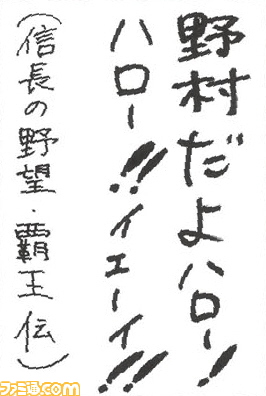 野村だよハロー!
ハロー!!イエーイ!!
(信長の野望・覇王伝)
ファミ通.com